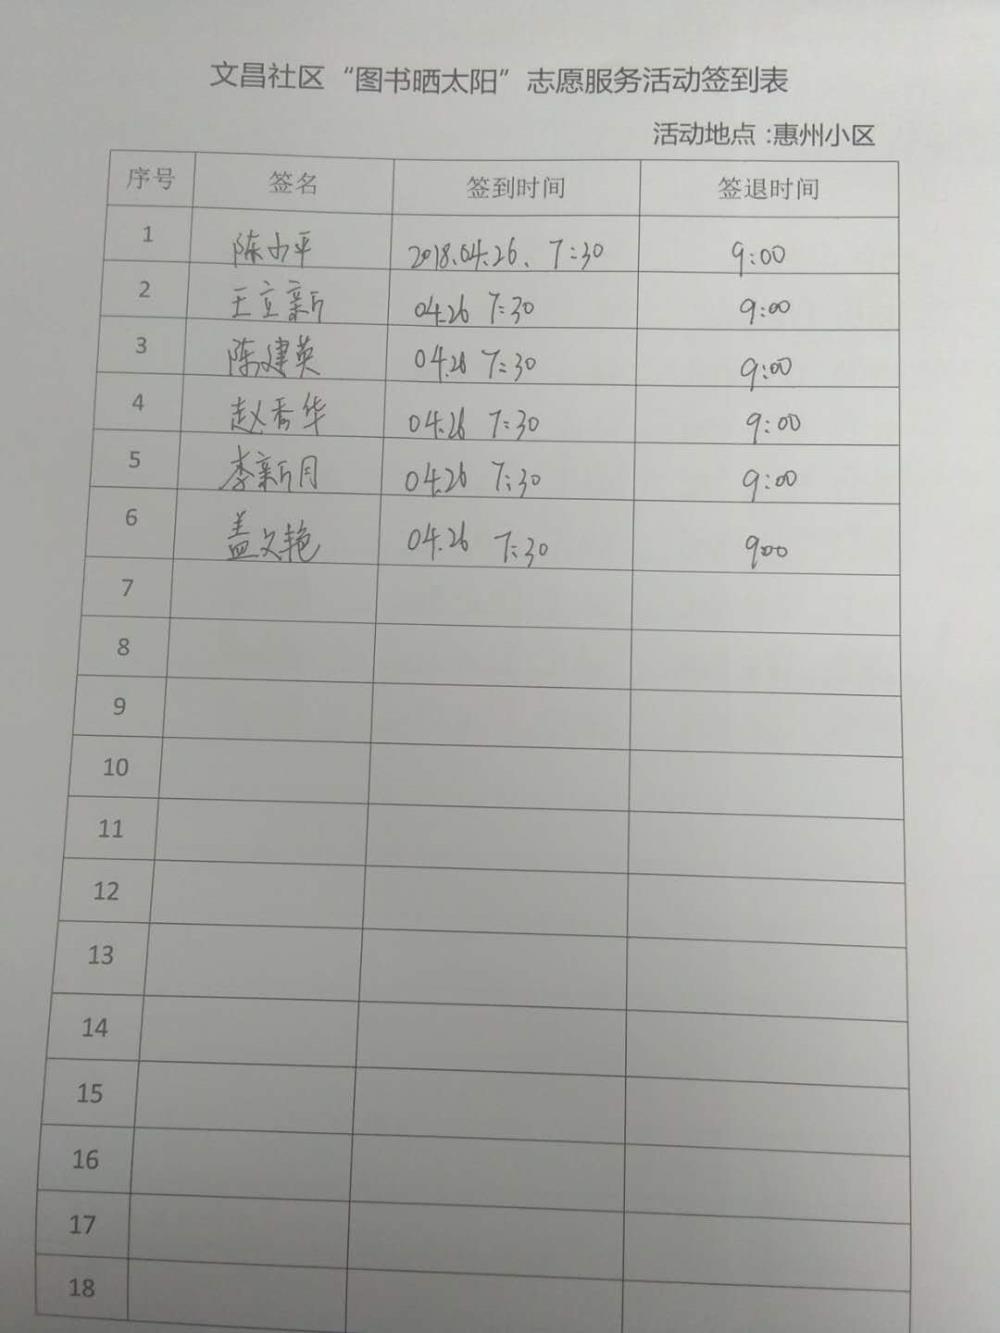 文昌社区“图书晒太阳”志愿服务活动签到表
活动地点:惠州小区
序号 签名 签到时间 签退时间
1 陈小平 2018.04.26. 7:30 9:00
2 王立新 04.26 7:30 9:00
3 陈建英 04.26 7:30 9:00
4 赵秀华 04.26 7:30 9:00
5 李新月 04.26 7:30 9:00
6 盖文艳 04.26 7:30 9:00
7
8
9
10
11
12
13
14
15
16
17
18